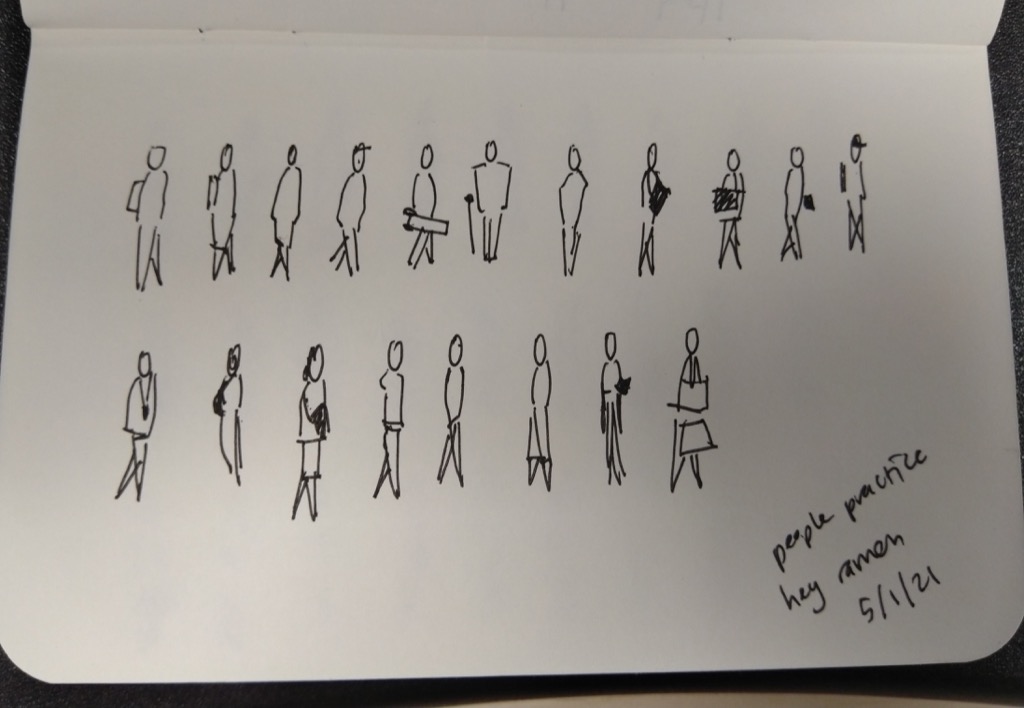 people practice
hey ramen
5/1/21